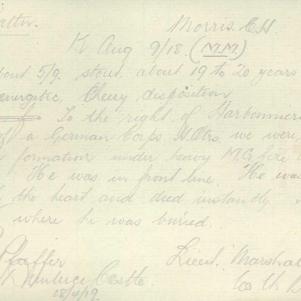 Morris. C H
K Aug 9/18. (M.M)
bout 5/9. stout. about 19 to 20 years
energetic, Cheery disposition
To the right of Harbonniers
off a German Corps H.Qtrs. we were
formation under heavy M.G. fire
He was in front line. He was
the heart and died instantly.
where he was buried.
Pfaffer Lieut. Marshal
Castle
18/4/19.